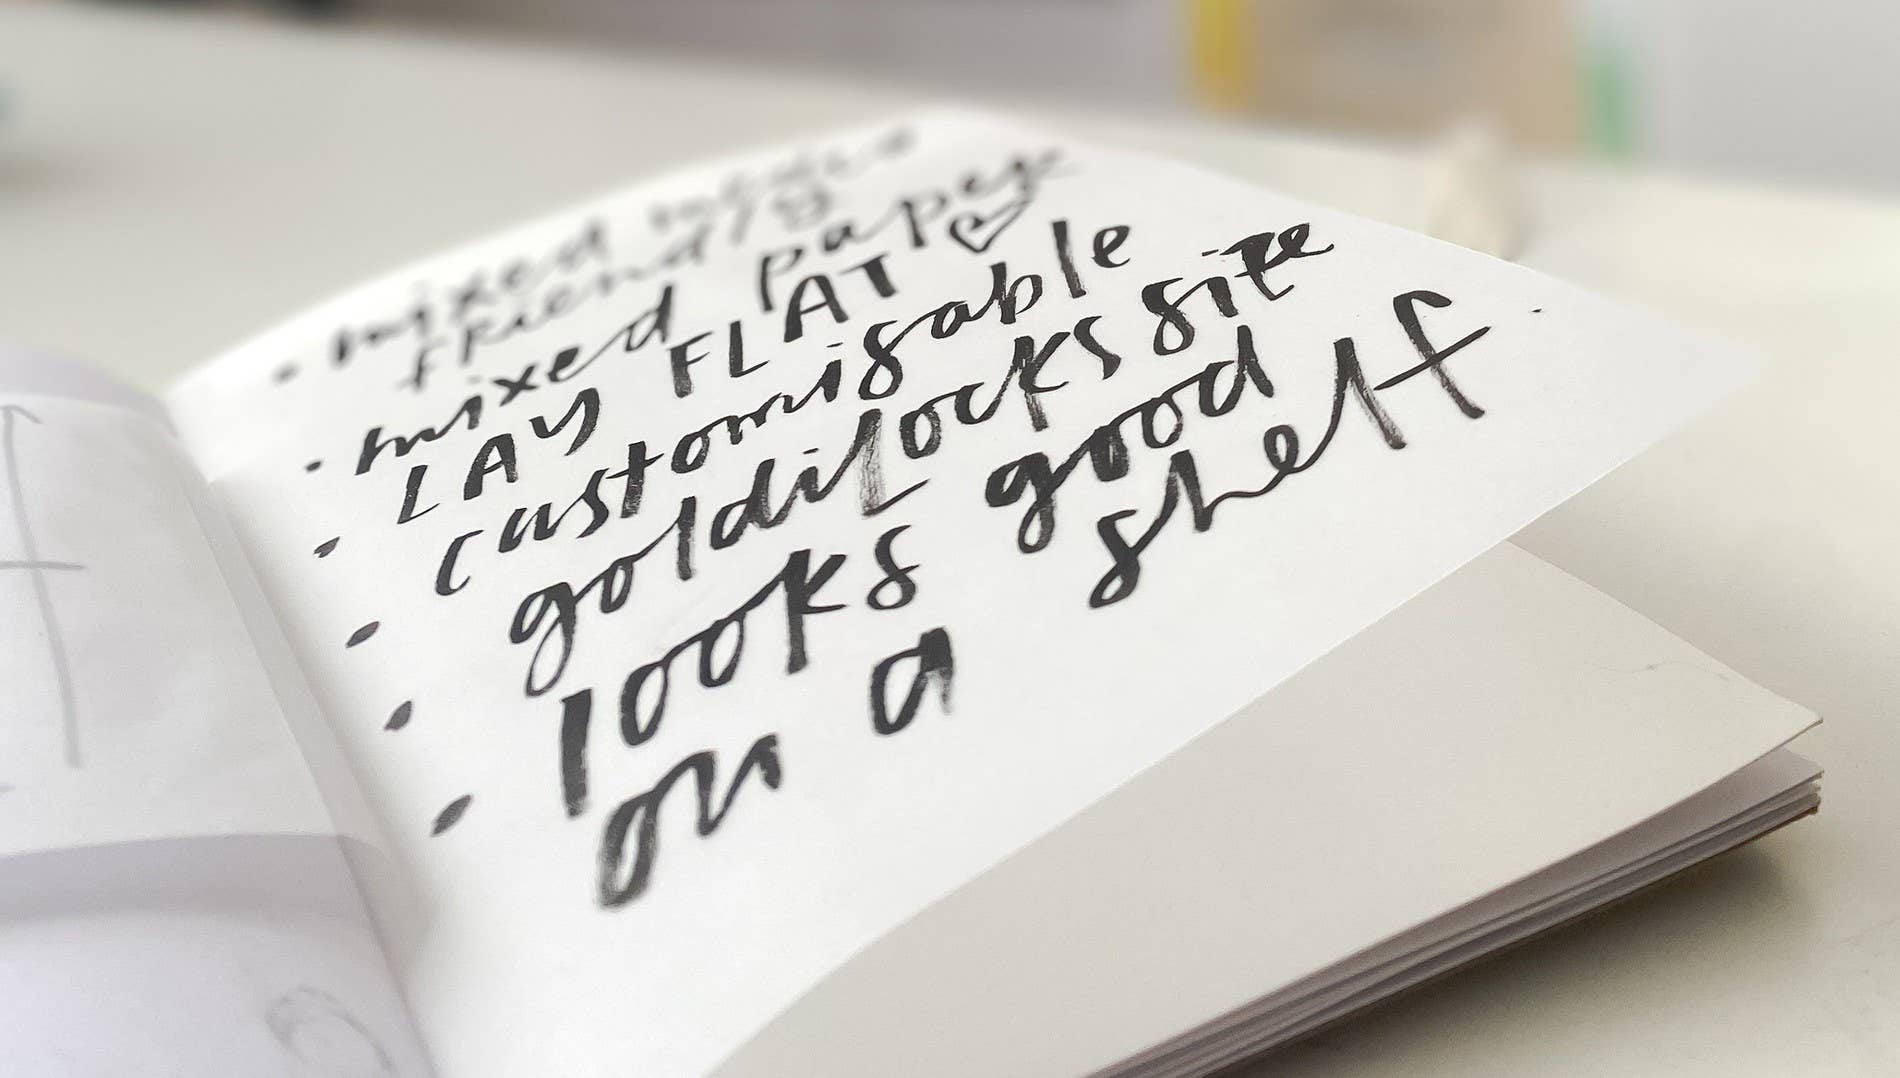 • mixed media
friendly
• mixed paper
• LAY FLAT ♡
• customisable
• goldilocks size
• looks good
on a shelf